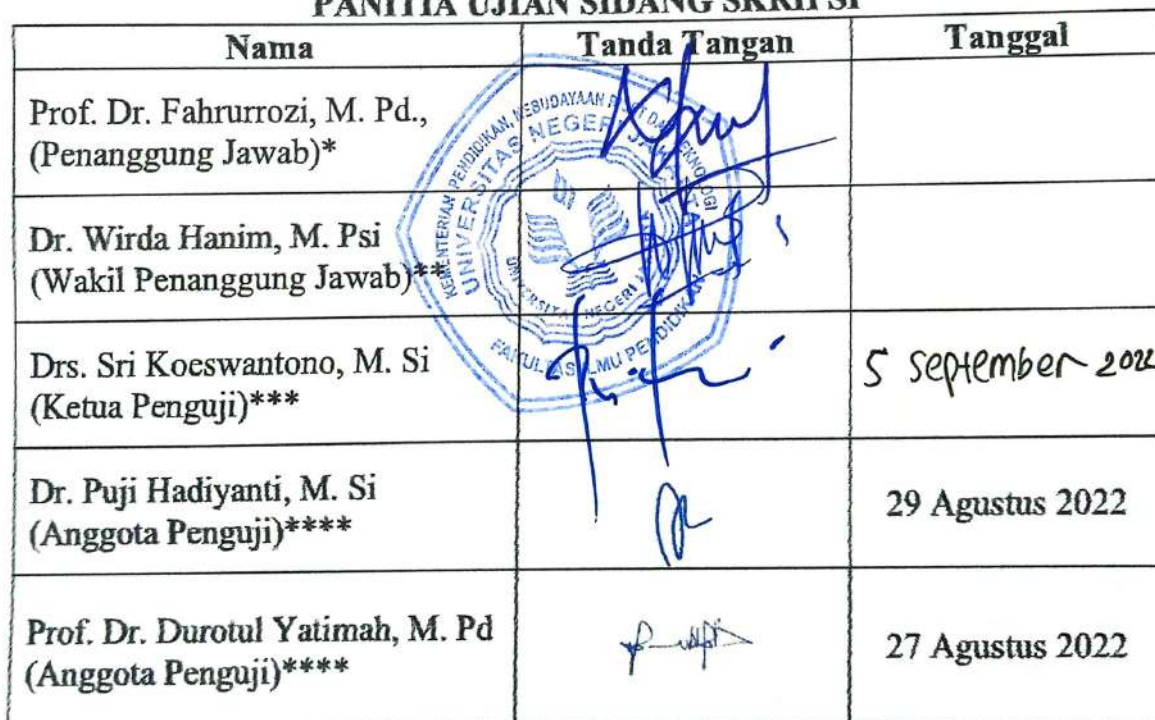 PANITIA UJIAN SIDANG SKRIPSI
Nama Tanda Tangan Tanggal
Prof. Dr. Fahrurrozi, M. Pd.,
(Penanggung Jawab)*
Dr. Wirda Hanim, M. Psi
(Wakil Penanggung Jawab)**
Drs. Sri Koeswantono, M. Si
(Ketua Penguji)***
5 September 2022
Dr. Puji Hadiyanti, M. Si
(Anggota Penguji)****
29 Agustus 2022
Prof. Dr. Durotul Yatimah, M. Pd
(Anggota Penguji)****
27 Agustus 2022
KEMENTERIAN PENDIDIKAN, KEBUDAYAAN
UNIVERSITAS NEGERI
UNIVERSITAS NEGERI
FAKULTAS ILMU PENDIDIKAN